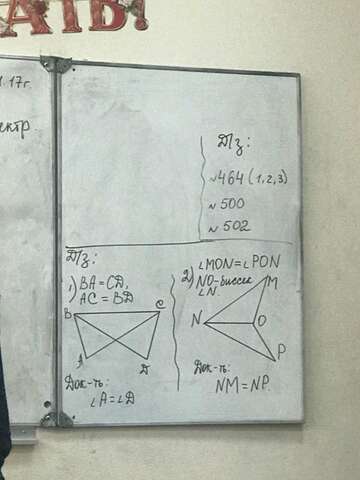 АТЬ!
.17г.
Д/з:
№464 (1,2,3)
№500
№502
Д/з:
1) BA = CD,
AC = BD
B C
A D
Док-ть:
∠A = ∠D
2) ∠MON = ∠PON
NO-биссек
∠N.
M
N O
P
Док-ть:
NM = NP.